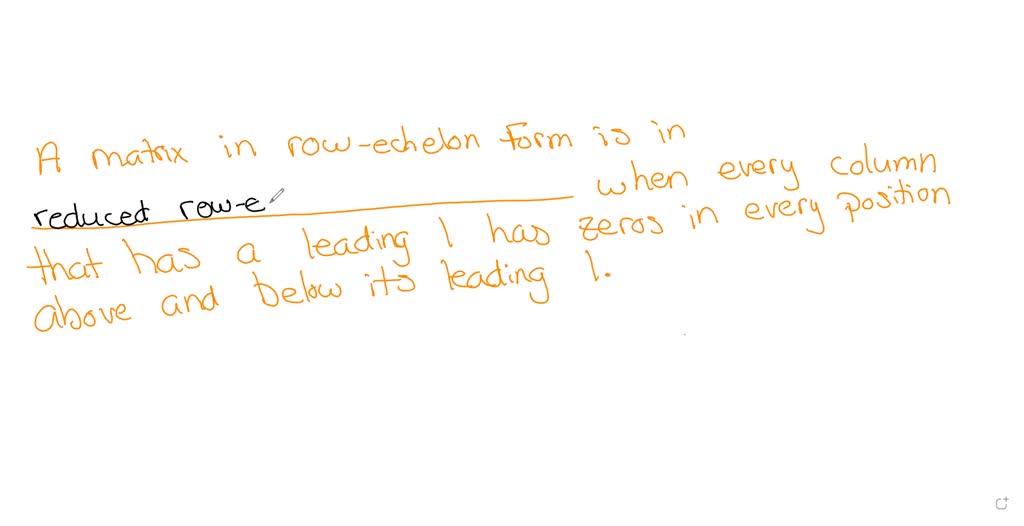 A matrix in row-echelon form is in
reduced row-e when every column
that has a leading 1 has zeros in every position
above and below its leading 1.